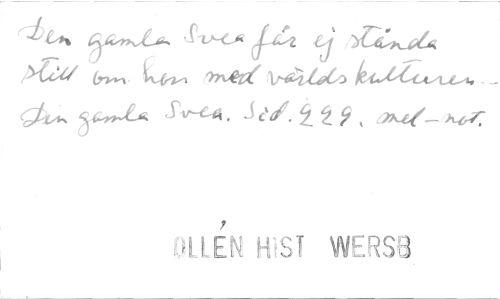 Den gamla Svea får ej stånda
still om hon med världskulturen –
Den gamla Svea. Sid. 229. mel-not.
OLLÉN HIST WERSB